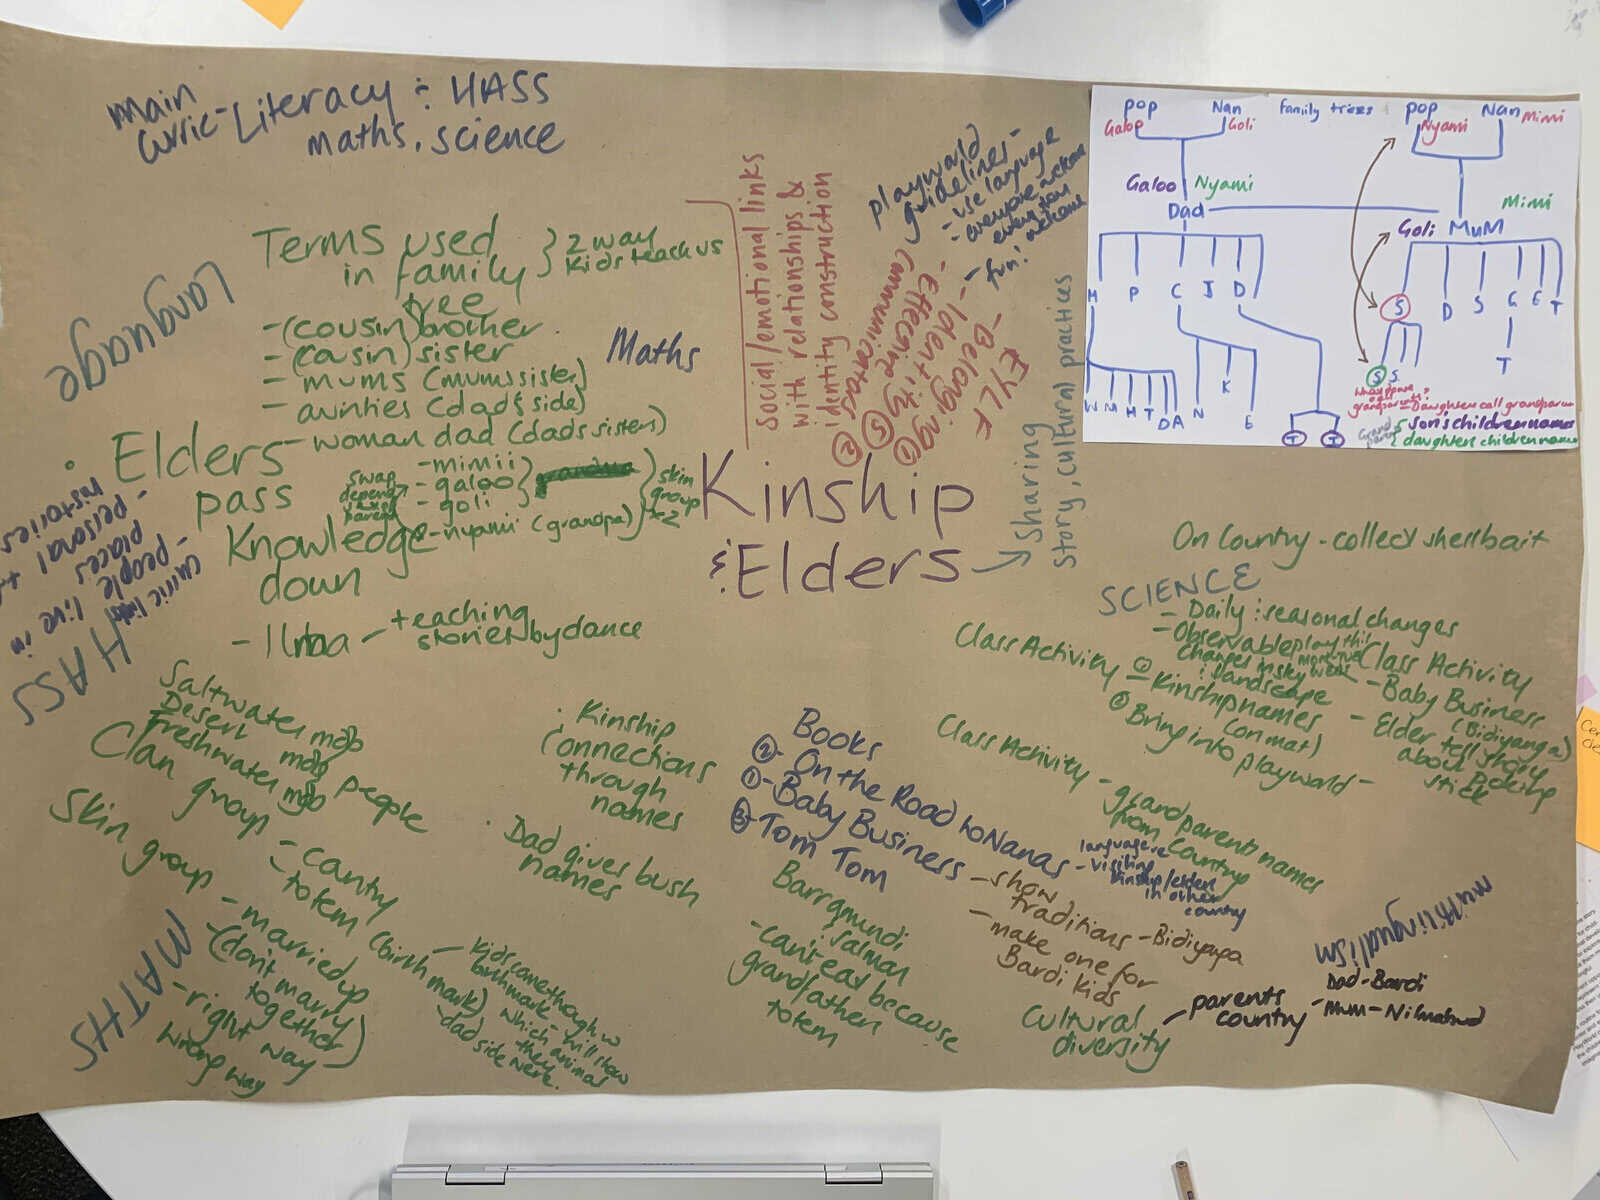 main
curric - Literacy : HASS
maths, science
Language
Terms used
in family
tree
} 2 way
kids teach us
- (cousin) brother
- (cousin) sister
- mums (mums sister)
- aunties (dad's side)
- woman dad (dads sisters)
- mimii
- galoo
- goli
- nyamii (grandpa)
swap
parent
skin
group
x2
Maths
• Elders
pass
Knowledge
down
- Ilma - teaching
stories by dance
HASS
curric links
- people live in
places
- personal +
histories
social/emotional links
with relationships &
identity construction
EYLF
- Belonging ①
- Identity
- Effective
communicators
playworld
guidelines -
- use language
- fun!
Kinship
& Elders
→ sharing
story, cultural practices
pop
Nan
family trees
pop
Nan
Mimi
Galoo
Goli
Nyami
Galoo
Nyami
Dad
Mimi
Goli
MuM
H P C J D
S D S G E T
W M H T D A N K E
T T
S S
T
Daughter call grandparen
son's children names
daughter children name
On Country - collect shellbait
SCIENCE
- Daily : seasonal changes
- Observable
changes in sky
: landscape
Class Activity
① - Kinship names
(on mat)
② Bring into playworld -
Class Activity
- Baby Business
(Bidiyanga)
- Elder tell story
about Poking
stick
Class Activity - grandparents names
from country
Saltwater mob
Desert mob
Freshwater mob
people
Clan group
- country
- totem
Skin group
- married up
- (don't marry
together)
- right way
wrong way
MATHS
(birthmark)
- Kids come through w
birthmark
which will show
which animal
they
were.
- dad side
• Kinship
Connections
through
names
• Dad gives bush
names
Books
② - On the Road to Nanas
① - Baby Business
③ - Tom Tom
- visiting
kinship/elders
in other
country
- show
traditions - Bidiyanga
- make one for
Bardi kids
Barramundi
: salmon
- can't eat because
grandfather
totem
Cultural
diversity
- parents
country
multilingualism
Dad - Bardi